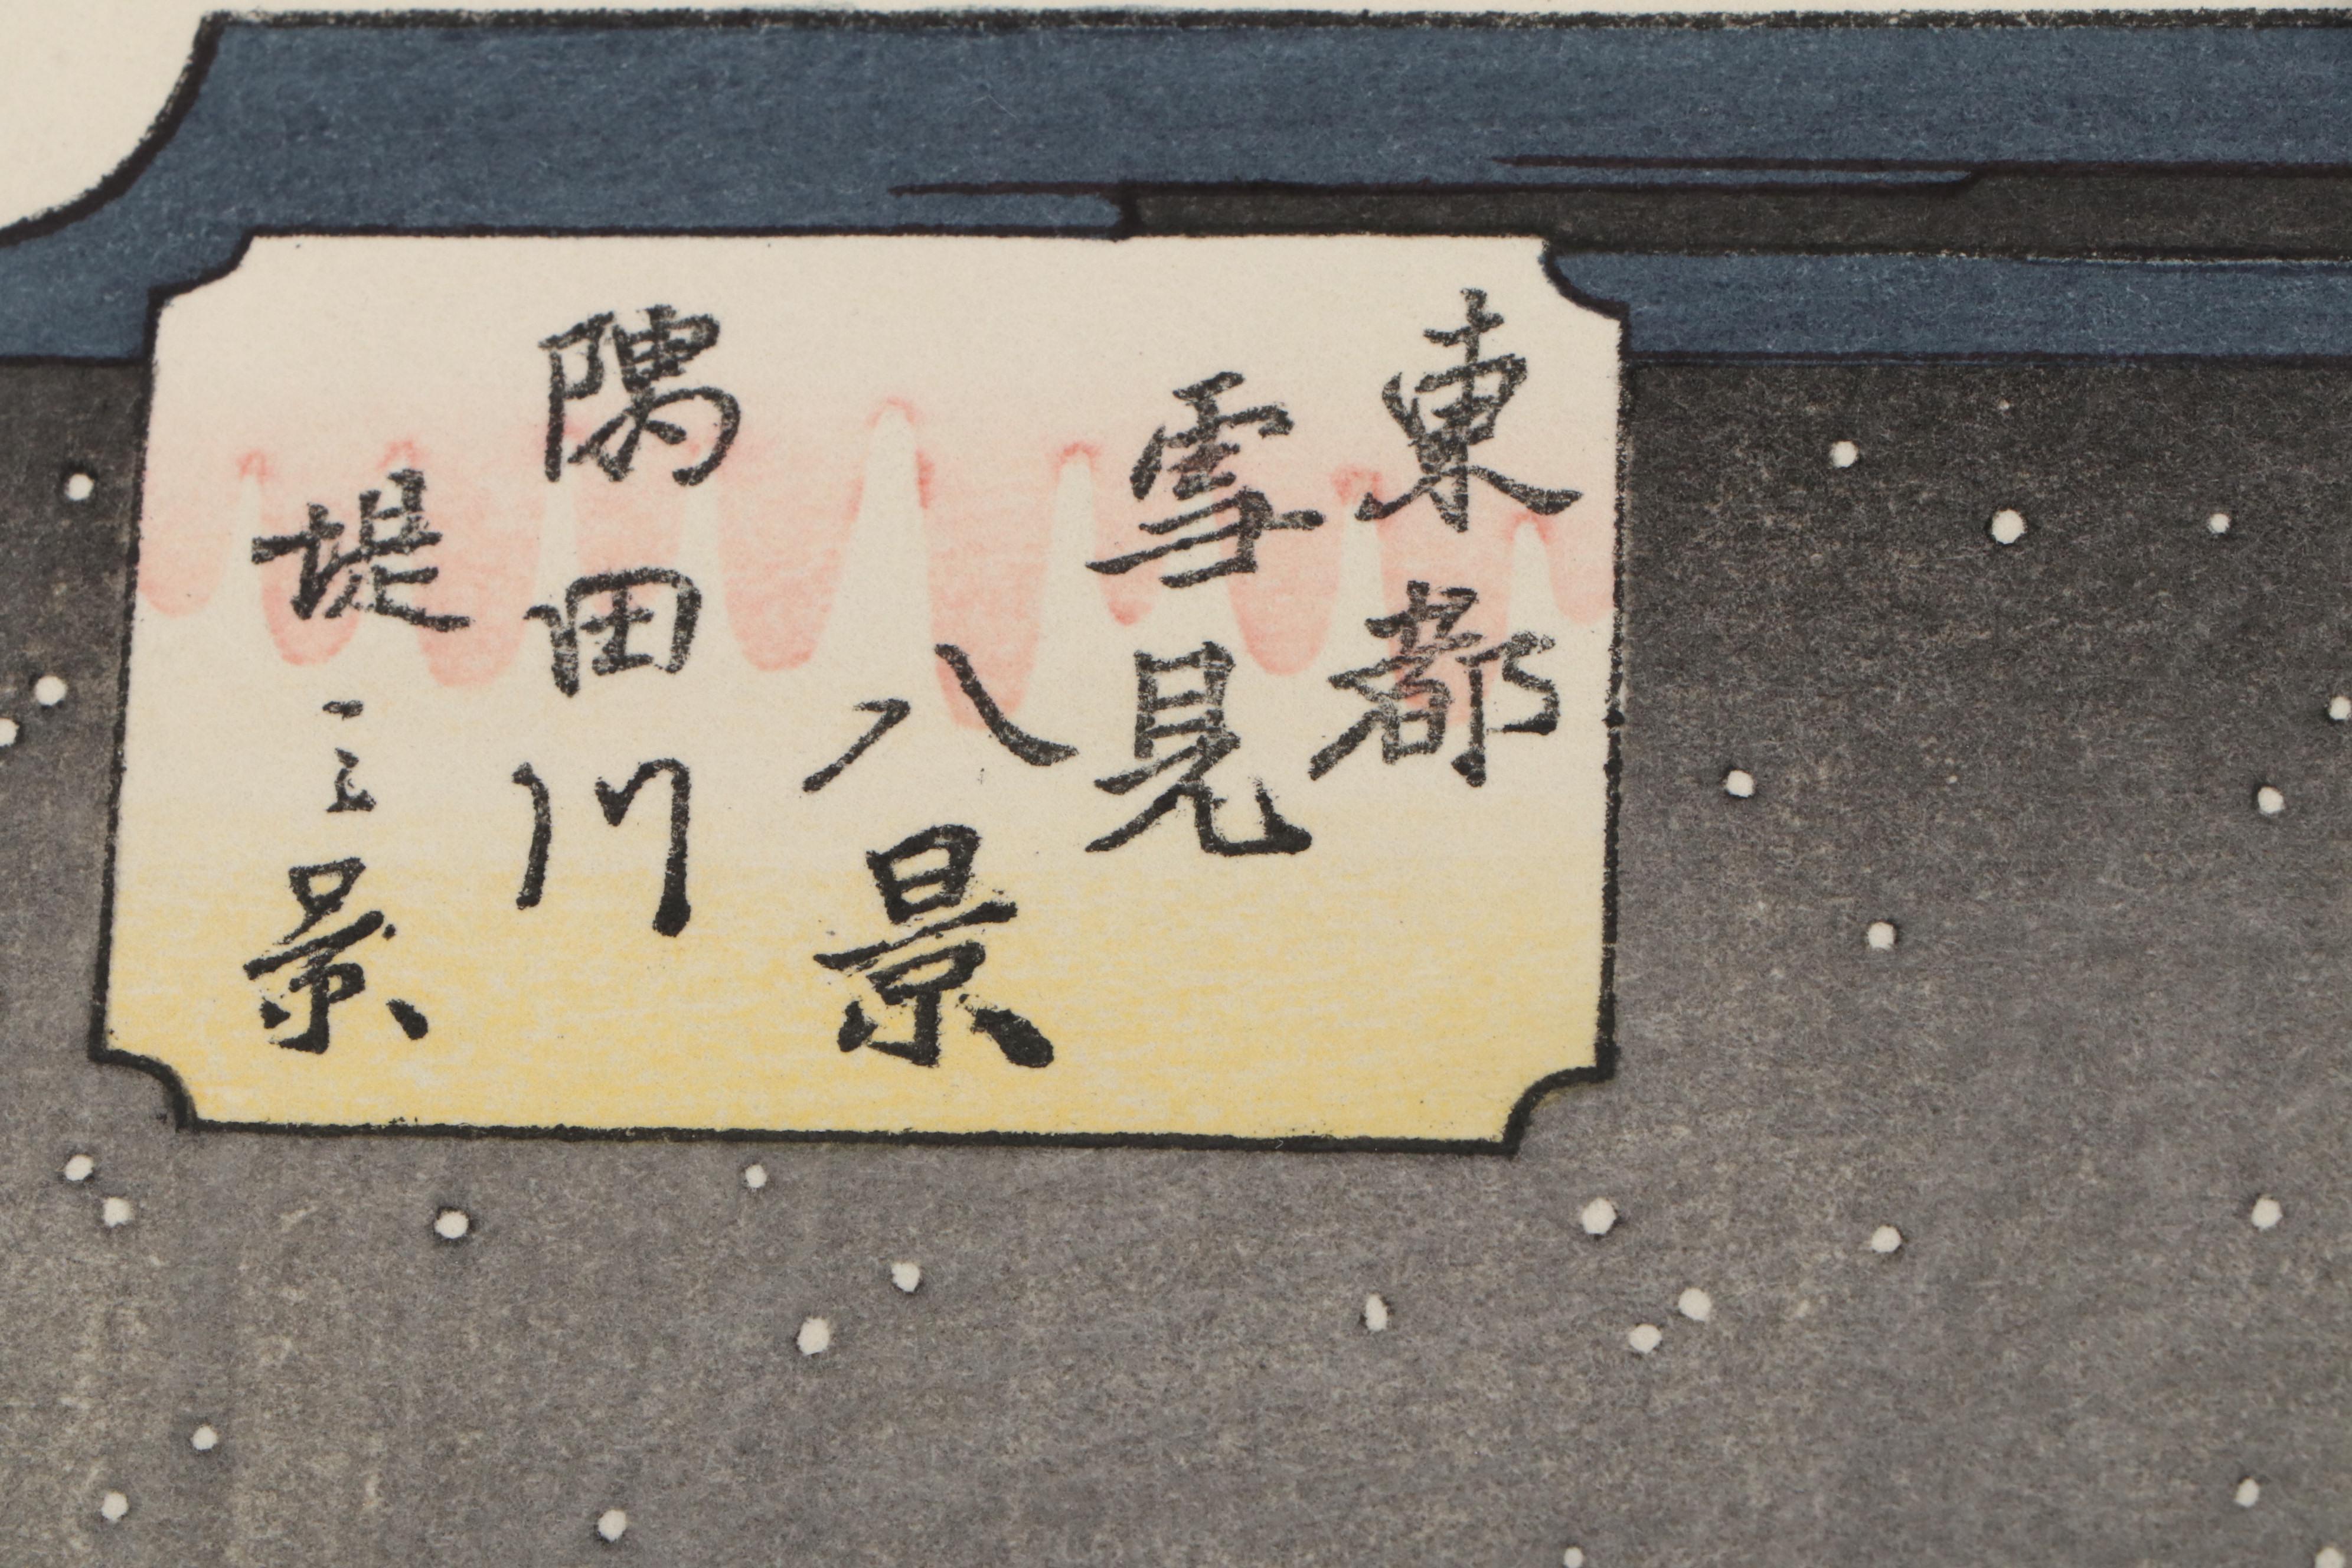 東都
雪見
八景
隅田川
堤ミ景